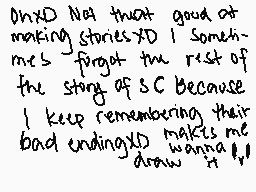 OhxD Not that good at
making stories XD I someti-
mes forgot the rest of
the story of SC Because
I keep remembering their
bad endingXD makes me
wanna
draw it !,!